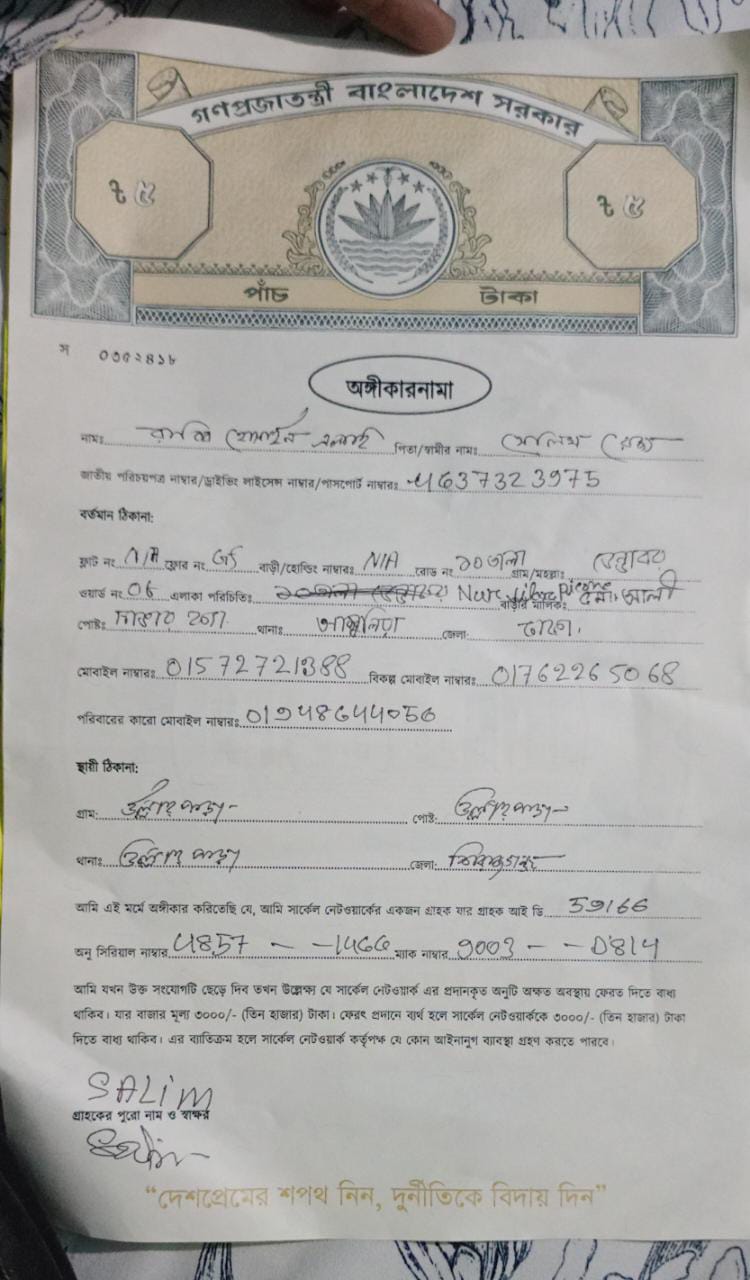 গণপ্রজাতন্ত্রী বাংলাদেশ সরকার
৳ ৫ ৳ ৫
পাঁচ টাকা
স ০৩৫২৪১৮
অঙ্গীকারনামা
নামঃ পিতা/স্বামীর নামঃ
জাতীয় পরিচয়পত্র নাম্বার/ড্রাইভিং লাইসেন্স নাম্বার/পাসপোর্ট নাম্বারঃ 4637323975
বর্তমান ঠিকানা:
ফ্লাট নং N/A ফ্লোর নং G5 বাড়ী/হোল্ডিং নাম্বারঃ N/A রোড নং ১০তলা গ্রাম/মহল্লাঃ
ওয়ার্ড নং 06 এলাকা পরিচিতিঃ বাড়ীর মালিক: আলী
পোষ্ট: থানাঃ আশুলিয়া জেলা: ঢাকা।
মোবাইল নাম্বারঃ 01572721388 বিকল্প মোবাইল নাম্বারঃ 01762265068
পরিবারের কারো মোবাইল নাম্বারঃ
স্থায়ী ঠিকানা:
গ্রাম: উল্লাপাড়া পোষ্ট: উল্লাপাড়া
থানাঃ উল্লাপাড়া জেলা: সিরাজগঞ্জ
আমি এই মর্মে অঙ্গীকার করিতেছি যে, আমি সার্কেল নেটওয়ার্কের একজন গ্রাহক যার গ্রাহক আই ডি 59166
অনু সিরিয়াল নাম্বার 4857 - -1466 ম্যাক নাম্বার 9003 - - D814
আমি যখন উক্ত সংযোগটি ছেড়ে দিব তখন উল্লেক্ষ্য যে সার্কেল নেটওয়ার্ক এর প্রদানকৃত অনুটি অক্ষত অবস্থায় ফেরত দিতে বাধ্য
থাকিব। যার বাজার মূল্য ৩০০০/- (তিন হাজার) টাকা। ফেরৎ প্রদানে ব্যর্থ হলে সার্কেল নেটওয়ার্ককে ৩০০০/- (তিন হাজার) টাকা
দিতে বাধ্য থাকিব। এর ব্যতিক্রম হলে সার্কেল নেটওয়ার্ক কর্তৃপক্ষ যে কোন আইনানুগ ব্যাবস্থা গ্রহণ করতে পারবে।
SALIM
গ্রাহকের পুরো নাম ও স্বাক্ষর
“দেশপ্রেমের শপথ নিন, দুর্নীতিকে বিদায় দিন”